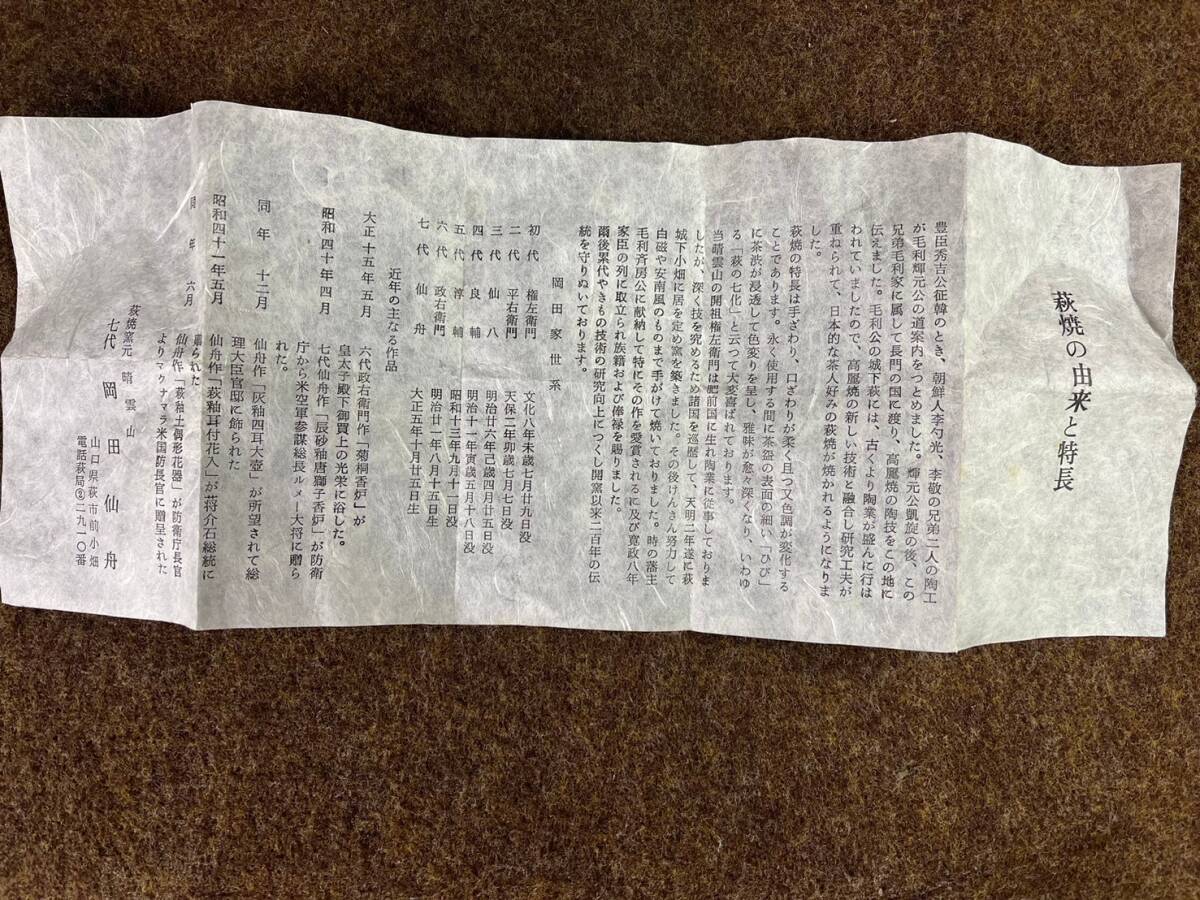 萩焼の由来と特長
豊臣秀吉公征韓のとき、朝鮮人李勺光、李敬の兄弟二人の陶工
が毛利輝元公の道案内をつとめました。輝元公凱旋の後、この
兄弟毛利家に属して長門の国に渡り、高麗焼の陶技をこの地に
伝えました。毛利公の城下萩には、古くより陶業が盛んに行は
われていましたので、高麗焼の新しい技術と融合し研究工夫が
重ねられて、日本的な茶人好みの萩焼が焼かれるようになりま
した。
萩焼の特長は手ざわり、口ざわりが柔く且つ又色調が変化する
ことであります。永く使用する間に茶盌の表面の細い「ひび」
に茶渋が浸透して色変りを呈し、雅味が愈々深くなり、いわゆ
る「萩の七化」と云つて大変喜ばれております。
当晴雲山の開祖権左衛門は肥前国に生れ陶業に従事しておりま
したが、深く技を究めるため諸国を巡歴して、天明二年遂に萩
城下小畑に居を定め窯を築きました。その後けんさん努力して
白磁や安南風のものまで手がけて焼いておりました。時の藩主
毛利斉房公に献納して特にその作を愛賞されるに及び寛政八年
家臣の列に取立られ族籍および俸禄を賜りました。
爾後累代やきもの技術の研究向上につくし開窯以来二百年の伝
統を守りぬいております。
岡田家世系
初代 権左衛門 文化八年未歳七月廿九日没
二代 平右衛門 天保二年卯歳七月七日没
三代 仙八 明治廿六年己歳四月廿五日没
四代 良輔 明治十一年寅歳五月十八日没
五代 淳輔 昭和十三年九月十一日没
六代 政右衛門 明治廿一年八月十五日生
七代 仙舟 大正五年十月廿五日生
近年の主なる作品
大正十五年五月 六代政右衛門作「菊桐香炉」が
皇太子殿下御買上の光栄に浴した。
昭和四十年四月 七代仙舟作「辰砂釉唐獅子香炉」が防衛
庁から米空軍参謀総長ルメー大将に贈ら
れた。
同年 十二月 仙舟作「灰釉四耳大壺」が所望されて総
理大臣官邸に飾られた
昭和四十一年五月 仙舟作「萩釉耳付花入」が蒋介石総統に
贈られた
同年 六月 仙舟作「萩釉土偶形花器」が防衛庁長官
よりマクナマラ米国防長官に贈呈された
萩焼窯元 晴雲山
七代 岡田仙舟
山口県萩市前小畑
電話萩局②二九一〇番